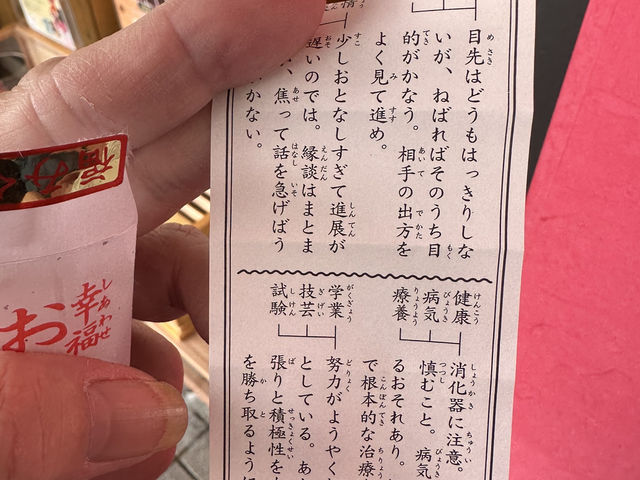 目先はどうもはっきりしな
いが、ねばればそのうち目
的がかなう。相手の出方を
よく見て進め。
少しおとなしすぎて進展が
遅いのでは。縁談はまとま
、焦って話を急げばう
かない。
健康
病気
療養
消化器に注意。
慎むこと。病気
るおそれあり。
で根本的な治療
学業
技芸
試験
努力がようやく
としている。あ
張りと積極性を
を勝ち取るように
幸福
しあわせ
お
福
み